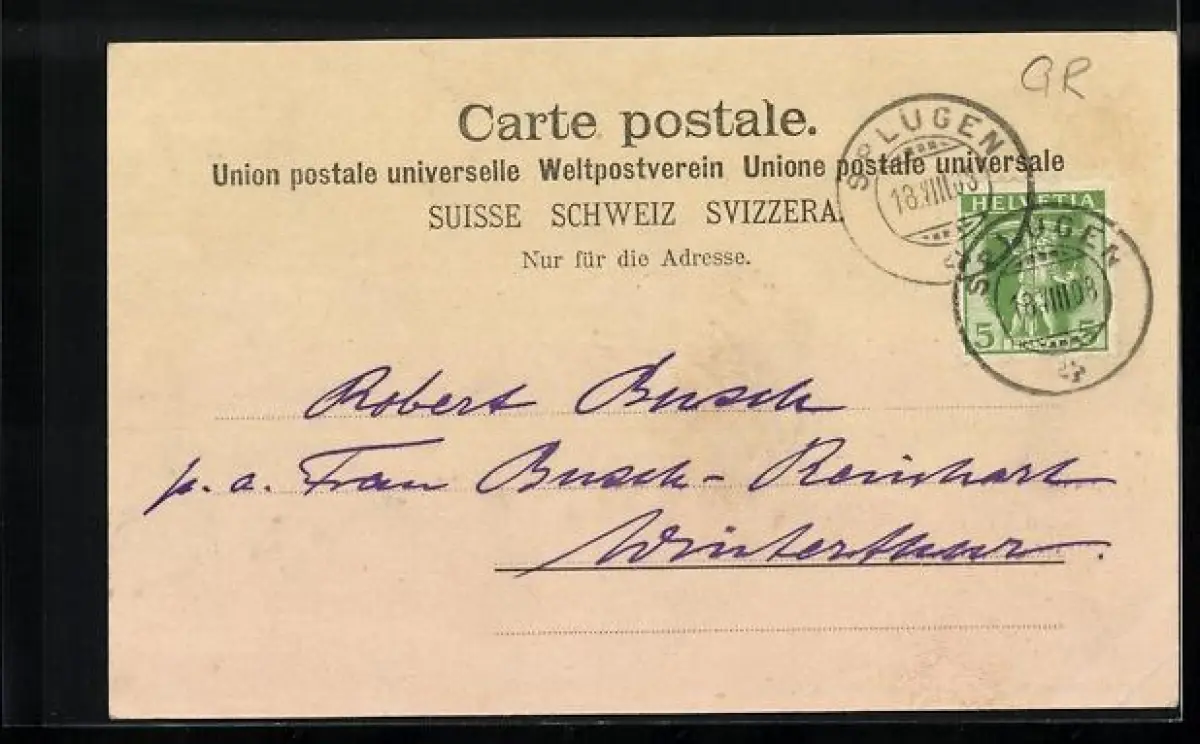 GR
Carte postale.
Union postale universelle Weltpostverein Unione postale universale
SUISSE SCHWEIZ SVIZZERA.
Nur für die Adresse.
SPLÜGEN
18.VIII.08
HELVETIA
5 5
SPLÜGEN
18.VIII.08
Robert Busch
p. a. Frau Busch-Reinhart
Winterthur.